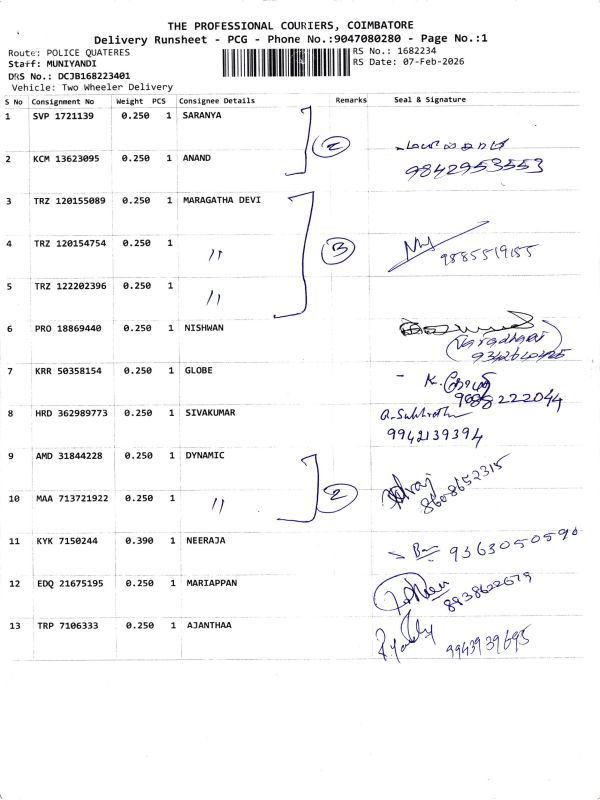 THE PROFESSIONAL COURIERS, COIMBATORE
Delivery Runsheet - PCG - Phone No.:9047080280 - Page No.:1
Route: POLICE QUATERES
RS No.: 1682234
Staff: MUNIYANDI
RS Date: 07-Feb-2026
DRS No.: DCJB168223401
Vehicle: Two Wheeler Delivery
S No Consignment No Weight PCS Consignee Details Remarks Seal & Signature
1 SVP 1721139 0.250 1 SARANYA
2 KCM 13623095 0.250 1 ANAND 2 9842953553
3 TRZ 120155089 0.250 1 MARAGATHA DEVI
4 TRZ 120154754 0.250 1 〃 3 9885519155
5 TRZ 122202396 0.250 1 〃
6 PRO 18869440 0.250 1 NISHWAN
7 KRR 50358154 0.250 1 GLOBE
8 HRD 362989773 0.250 1 SIVAKUMAR
9942139394
9 AMD 31844228 0.250 1 DYNAMIC
10 MAA 713721922 0.250 1 〃 2 8608652315
11 KYK 7150244 0.390 1 NEERAJA 9363050590
12 EDQ 21675195 0.250 1 MARIAPPAN 8938622679
13 TRP 7106333 0.250 1 AJANTHAA 9943939695